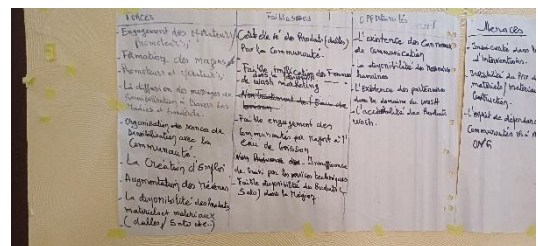 FORCES
- Engagement des
- Formation des maçons
Promoteurs et
- La diffusion des messages de
Sensibilisation à travers les
- Organisation des séances de
Sensibilisation avec la
Communauté.
- La Création d'Emploi
- Augmentation des
- La disponibilité des Produits
materiels et materiaux
(dalles / Sato etc..)
Faiblesses
des Produits (dalles)
Par la Communauté.
- Faible implication des Femmes
dans le
de wash marketing
- Faible engagement des
Communautés par rapport à l'
eau de boisson
insuffisance
de suivi par les services techniques
- Faible disponibilité des Produits (
Sato) dans la Région
Opportunités
- L'existence des
de communication
- La disponibilité des
humaines
- L'Existence des partenaires
dans le domaine du wash
- L'accessibilité des Produits
wash.
Menaces
- Insécurité dans
d'interventions.
- Instabilité du Prix
materiels / materiaux
Construction.
- L'esprit de dependance
Communautés Vis à Vis
ONG